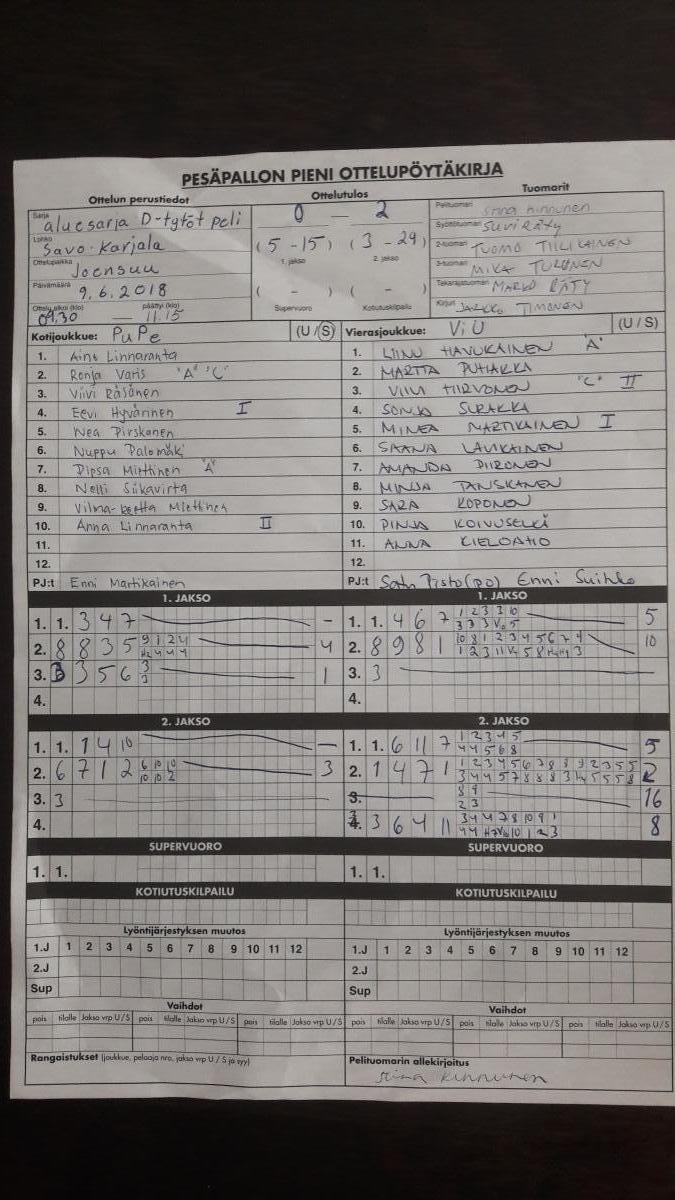 PESÄPALLON PIENI OTTELUPÖYTÄKIRJA
Ottelun perustiedot
Ottelutulos
Tuomarit
Sarja aluesarja D-tytöt peli
Lohko Savo-Karjala
Ottelupaikka Joensuu
Päivämäärä 9.6.2018
Ottelu alkoi (klo) päättyi (klo)
09.30 — 11.15
0 — 2
(5 - 15) (3 - 29)
1. jakso 2. jakso
( - ) ( - )
Supervuoro Kotiutuskilpailu
Pelituomari Kinnunen
Syöttötuomari Suvi Räty
2-tuomari TUOMO TIILIKAINEN
3-tuomari MIKA TURUNEN
Takarajatuomari MARKO RÄTY
Kirjuri JARKKO TIMONEN
Kotijoukkue: PuPe (U / S)
1. Aino Linnaranta
2. Ronja Varis "A" "C"
3. Viivi Räsänen
4. Eevi Hyvärinen I
5. Nea Pirskanen
6. Nuppu Palomäki
7. Pipsa Miettinen "A"
8. Nelli Siikavirta
9. Vilma-Miettinen
10. Anna Linnaranta II
11.
12.
PJ:t Enni Martikainen
Vierasjoukkue: ViU (U / S)
1. LIINU HAVUKAINEN "A"
2. MARTTA PUHAKKA
3. VIIVI HIRVONEN "C" II
4. SONJA SURAKKA
5. MINEA MARTIKAINEN I
6. SAANA LAUKAINEN
7. AMANDA PIIRONEN
8. MINJA TANSKANEN
9. SARA KOPONEN
10. PINJA KOIVUSELKÄ
11. ANNA KIELOAHO
12.
PJ:t Satu Pisto (PO) Enni Suihko
1. JAKSO
1. 1. 3 4 7 -
2. 8 8 3 5 9 1 2 4 4
3. 3 3 5 6 3 3 1
4.
1. JAKSO
1. 1. 4 6 7 1 2 3 3 10 5
2. 8 9 8 1 10 8 1 2 3 4 5 6 7 4 10
3. 3
4.
2. JAKSO
1. 1. 1 4 10 —
2. 6 7 1 2 6 10 10 3
10 10 2
3. 3
4.
2. JAKSO
1. 1. 6 11 7 1 2 3 4 5 5
4 4 5 6 8
2. 1 4 7 1 1 2 3 4 5 6 7 8
3. 8 9 16
2 3
3 6 4 11 3 4 4 7 8 10 9 1 8
SUPERVUORO
1. 1.
SUPERVUORO
1. 1.
KOTIUTUSKILPAILU
KOTIUTUSKILPAILU
Lyöntijärjestyksen muutos
1.J 1 2 3 4 5 6 7 8 9 10 11 12
2.J
Sup
Lyöntijärjestyksen muutos
1.J 1 2 3 4 5 6 7 8 9 10 11 12
2.J
Sup
Vaihdot
pois tilalle Jakso vrp U / S pois tilalle Jakso vrp U / S pois tilalle Jakso vrp U / S
Vaihdot
pois tilalle Jakso vrp U / S pois tilalle Jakso vrp U / S pois tilalle Jakso vrp U / S
Rangaistukset (joukkue, pelaaja nro, jakso vrp U / S ja syy)
Pelituomarin allekirjoitus
Kinnunen